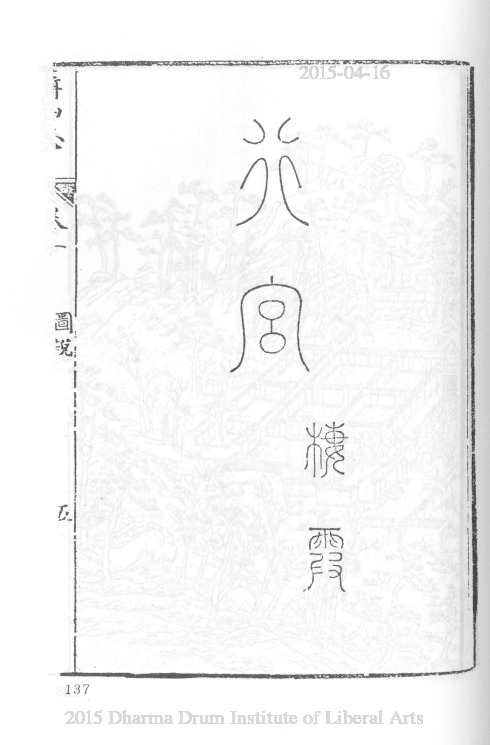 2015-04-16
行宮
棲霞
卷一
圖說
五
137
2015 Dharma Drum Institute of Liberal Arts